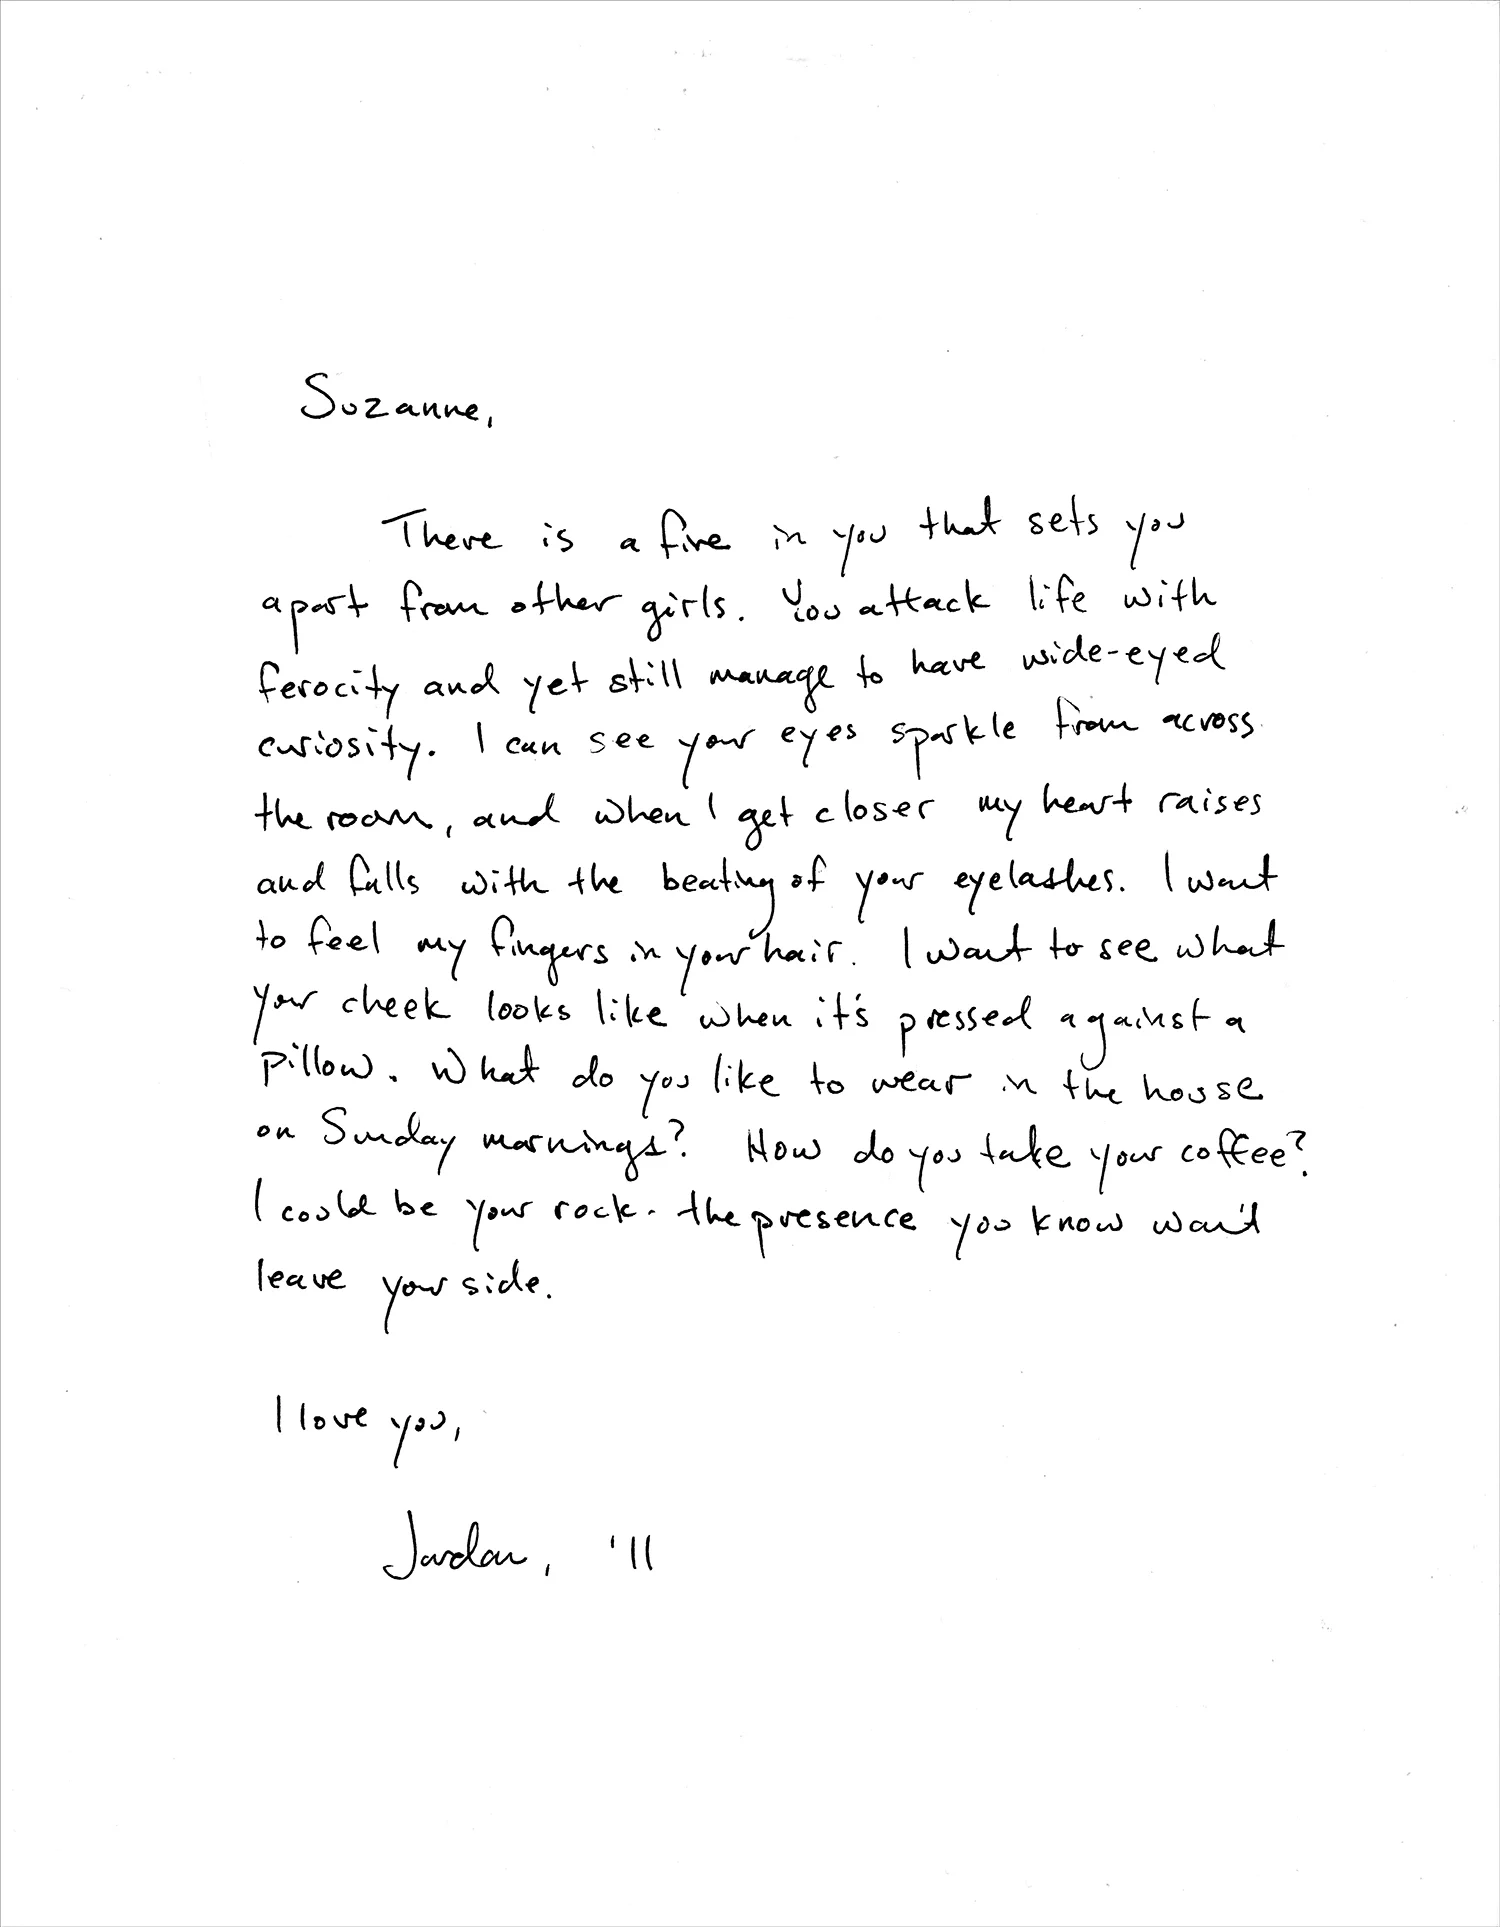 Suzanne,
There is a fire in you that sets you
apart from other girls. You attack life with
ferocity and yet still manage to have wide-eyed
curiosity. I can see your eyes sparkle from across
the room, and when I get closer my heart raises
and falls with the beating of your eyelashes. I want
to feel my fingers in your hair. I want to see what
your cheek looks like when it's pressed against a
pillow. What do you like to wear in the house
on Sunday mornings? How do you take your coffee?
I could be your rock. the presence you know won't
leave your side.
I love you,
Jordan, '11